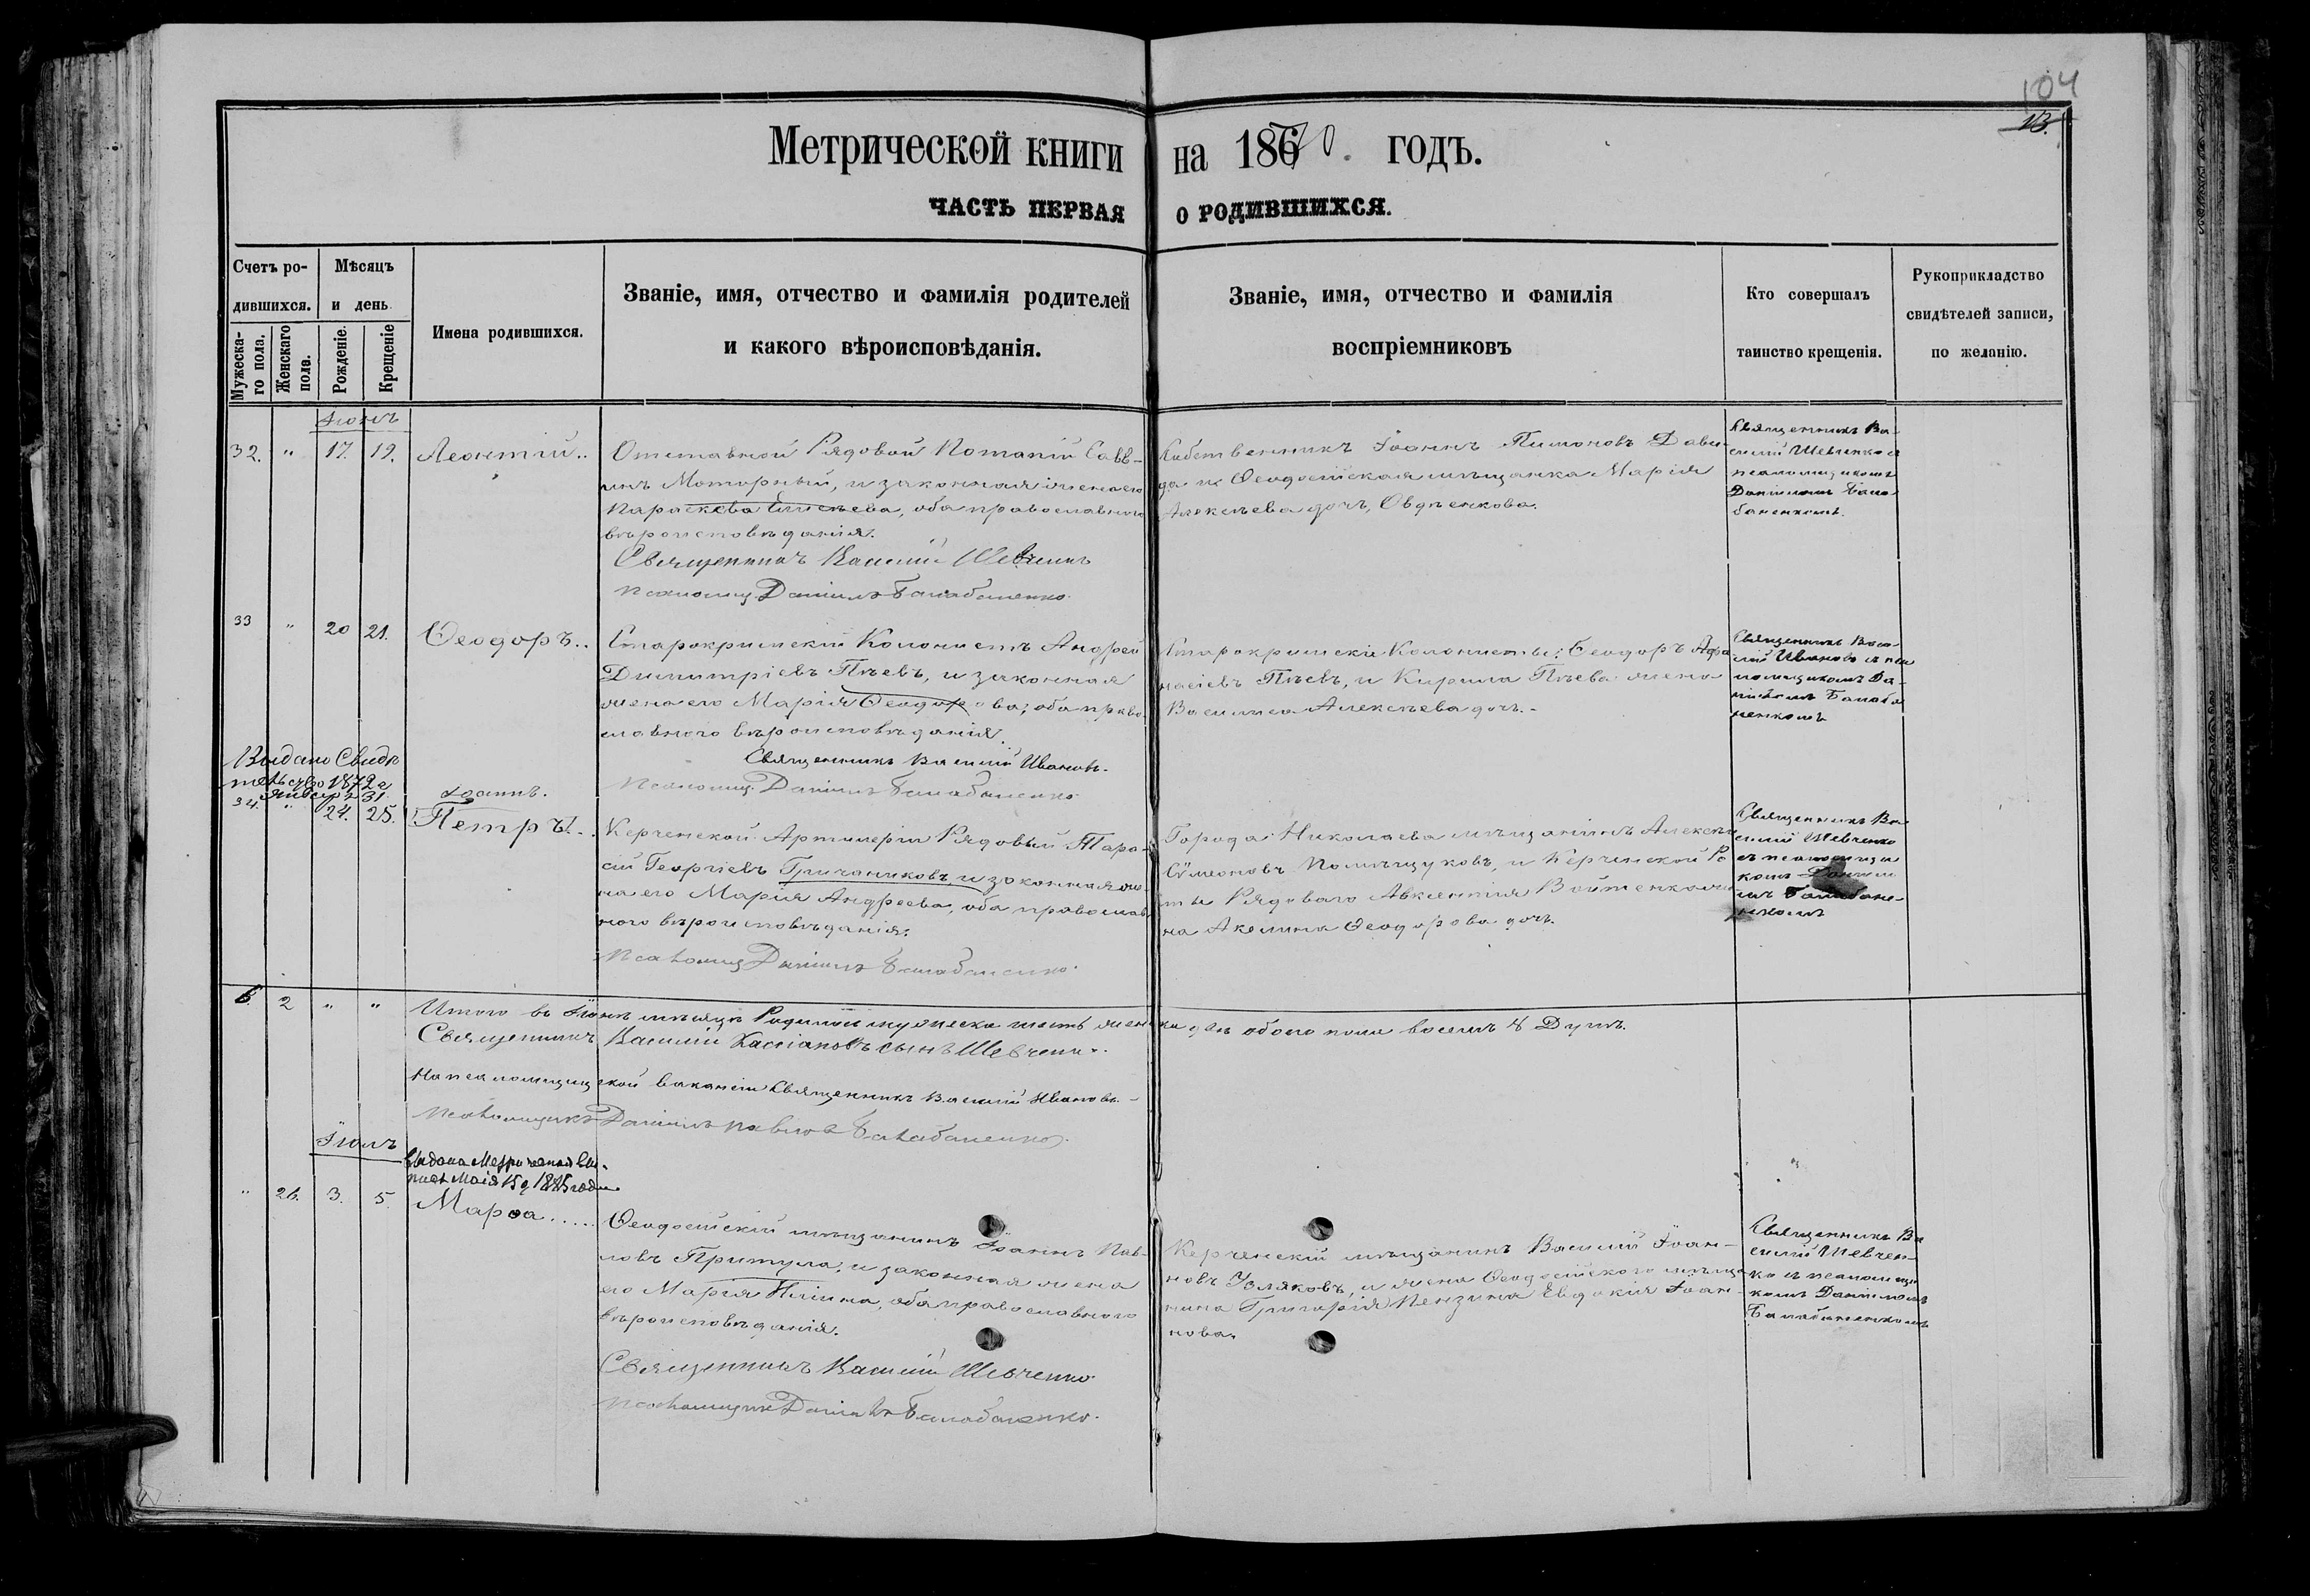 104
13.
Метрической книги на 1870. годъ.
ЧАСТЬ ПЕРВАЯ О РОДИВШИХСЯ.
Счетъ ро-
дившихся.
Мужеска-
го пола.
Женскаго
пола.
Мѣсяцъ
и день.
Рожденіе.
Крещеніе
Имена родившихся.
Званіе, имя, отчество и фамилія родителей
и какого вѣроисповѣданія.
Званіе, имя, отчество и фамилія
воспріемниковъ
Кто совершалъ
таинство крещенія.
Рукоприкладство
свидѣтелей записи,
по желанію.
Іюнь
32. " 17. 19. Леонтій..
Отставной Рядовой Потапій Савв-
инъ Моторный, и законная жена его
Параскева, оба православнаго
вѣроисповѣданія.
Священникъ Василій Шевченко
Псаломщ. Даніилъ Балабаненко.
Іоаннъ Тимоновъ Дави-
да и Ѳеодосійская мѣщанка Марія
Алексѣева дочь, Овдѣенкова.
Священникъ Ва-
силій Шевченко и
псаломщикомъ
Даніиломъ Бала-
баненкомъ.
33 " 20 21. Ѳеодоръ..
Старокрымскій Колонистъ Андрей
Димитріевъ Пѣевъ, и законная
жена его Марія Ѳеодорова; оба право-
славного вѣроисповѣданія.
Священникъ Василій Ивановъ.
Псаломщ. Даніилъ Балабаненко.
Старокрымскіе Колонисты: Ѳеодоръ Афа-
насіевъ Пѣевъ, и Кирила Пѣева жена
Василиса Алексѣева дочь.-
Священникъ Васи-
лій Ивановъ и пса
ломщикомъ Да-
ніиломъ Балаба
ненкомъ
Выдано Свидѣ
тельство 1872 г
Января 31.
Іоаннъ.
34. " 24. 25. Петръ!..
Керченской Артилеріи Рядовый Тара-
сій Георгіевъ Гричаниковъ, и законная же-
на его Марія Андреева, оба православ-
ного вѣроисповѣданія.
Псаломщ Даніилъ Балабаненко.
Города Николаева мѣщанинъ Алексѣй
Сѵмеоновъ Полищуковъ, и Керченской Ро
ты Рядоваго Авксентія Войтенкова же
на Акелина Ѳеодорова дочь.
Священникъ Ва-
силій Шевченко
съ псаломщи
комъ Даніи
ломъ Балабане-
нкомъ
6. 2 " " Итого въ Іюнѣ мѣсяцѣ Родилось мужеска шесть женска двѣ обоего пола восемь 8 Душъ.
Священникъ Василій Кассіановъ сынъ Шевченко.
На псаломщицкой вакансіи Священникъ Василій Ивановъ.-
Псаломщикъ Даніилъ Павловъ Балабаненко.
Іюль
Выдана Метрическая вы-
пись Маія 15 д 1885 года
" 26. 3. 5. Марѳа.....
Ѳеодосійскій мѣщанинъ Іоаннъ Пав-
ловъ Притула, и законная жена
его Марія Ильина, оба православного
вѣроисповѣданія.
Священникъ Василій Шевченко.
Псаломщикъ Даніилъ Балабаненко.
Керченскій мѣщанинъ Василій Іоан-
новъ Уоляковъ, и жена Ѳеодосійского мѣща-
нина Григорія Пензина Евдокія Іоан-
нова.
Священникъ Ва
силій Шевчен-
ко и псаломщи
комъ Даніиломъ
Балабаненкомъ